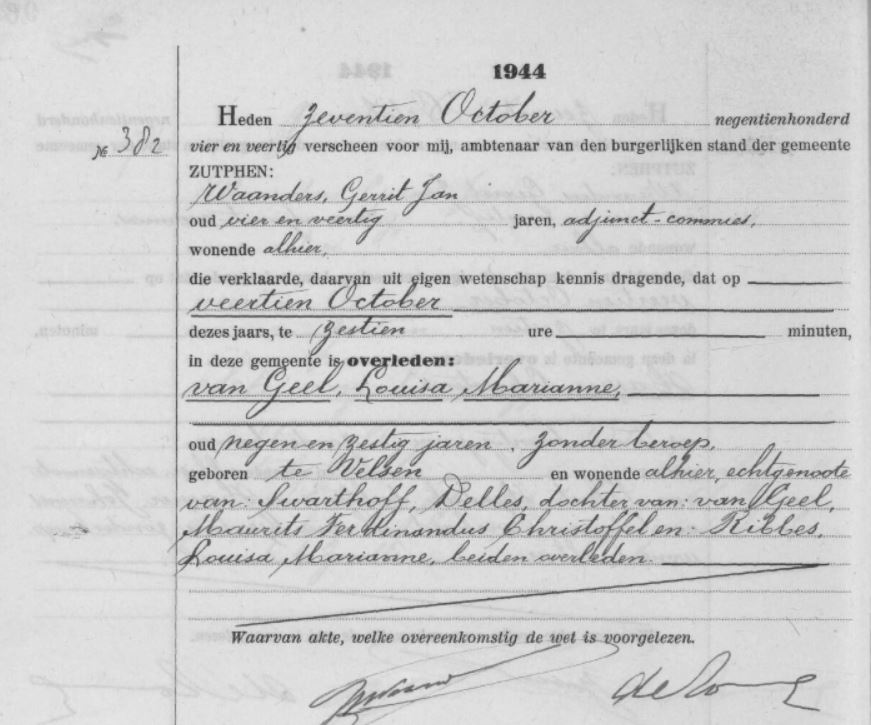 1944
№ 382
Heden zeventien October negentienhonderd
vier en veertig verscheen voor mij, ambtenaar van den burgerlijken stand der gemeente
ZUTPHEN:
Waanders, Gerrit Jan
oud vier en veertig jaren, adjunct-commies,
wonende alhier,
die verklaarde, daarvan uit eigen wetenschap kennis dragende, dat op
veertien October
dezes jaars, te zestien ure minuten,
in deze gemeente is overleden:
van Geel, Louisa Marianne,
oud negen en zestig jaren, zonder beroep,
geboren te Velsen en wonende alhier, echtgenoote
van: Swarthoff, Delles, dochter van: van Geel,
Maurits Ferdinandus Christoffel en: Ribbes,
Louisa Marianne, beiden overleden.
Waarvan akte, welke overeenkomstig de wet is voorgelezen.